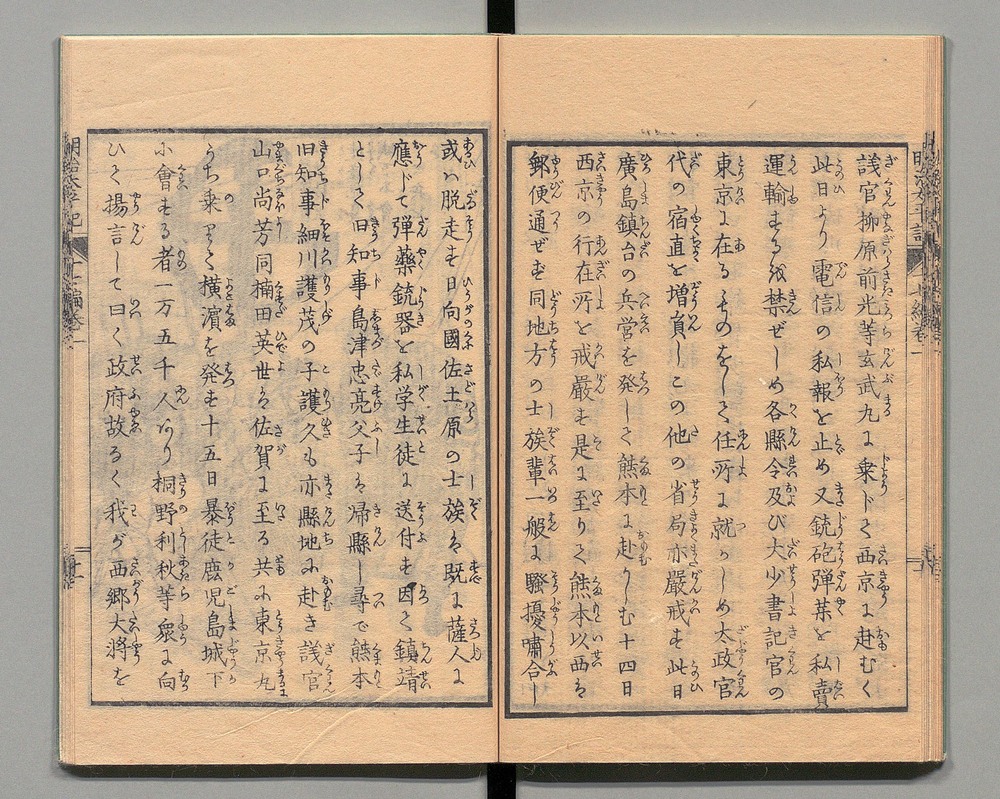 議官柳原前光等玄武丸に乗じて西京に赴むく
此日より電信の私報を止め又銃砲弾薬を私賣
運輸する𛂞禁ぜしめ各縣令及び大少書記官の
東京に在るものをして任所に就かしめ太政官
代の宿直を増員しこの他の省局亦嚴戒す此日
廣島鎮台の兵営を発して熊本に赴かしむ十四日
西京の行在所を戒嚴す是に至りて熊本以西は
郵便通ぜず同地方の士族輩一般に騒擾嘯合し
或ハ脱走す日向國佐土原の士族は既に薩人に
應じて弾藥銃器を私学生徒に送付す因て鎮靖
として旧知事島津忠亮父子は帰縣し尋で熊本
旧知事細川護茂の子護久も亦縣地に赴き議官
山口尚芳同楠田英世は佐賀に至る共に東京丸
うち乗りて横濱を発す十五日暴徒鹿児島城下
に會する者一万五千人なり桐野利秋等衆に向
ひて揚言して曰く政府故なく我が西郷大將を